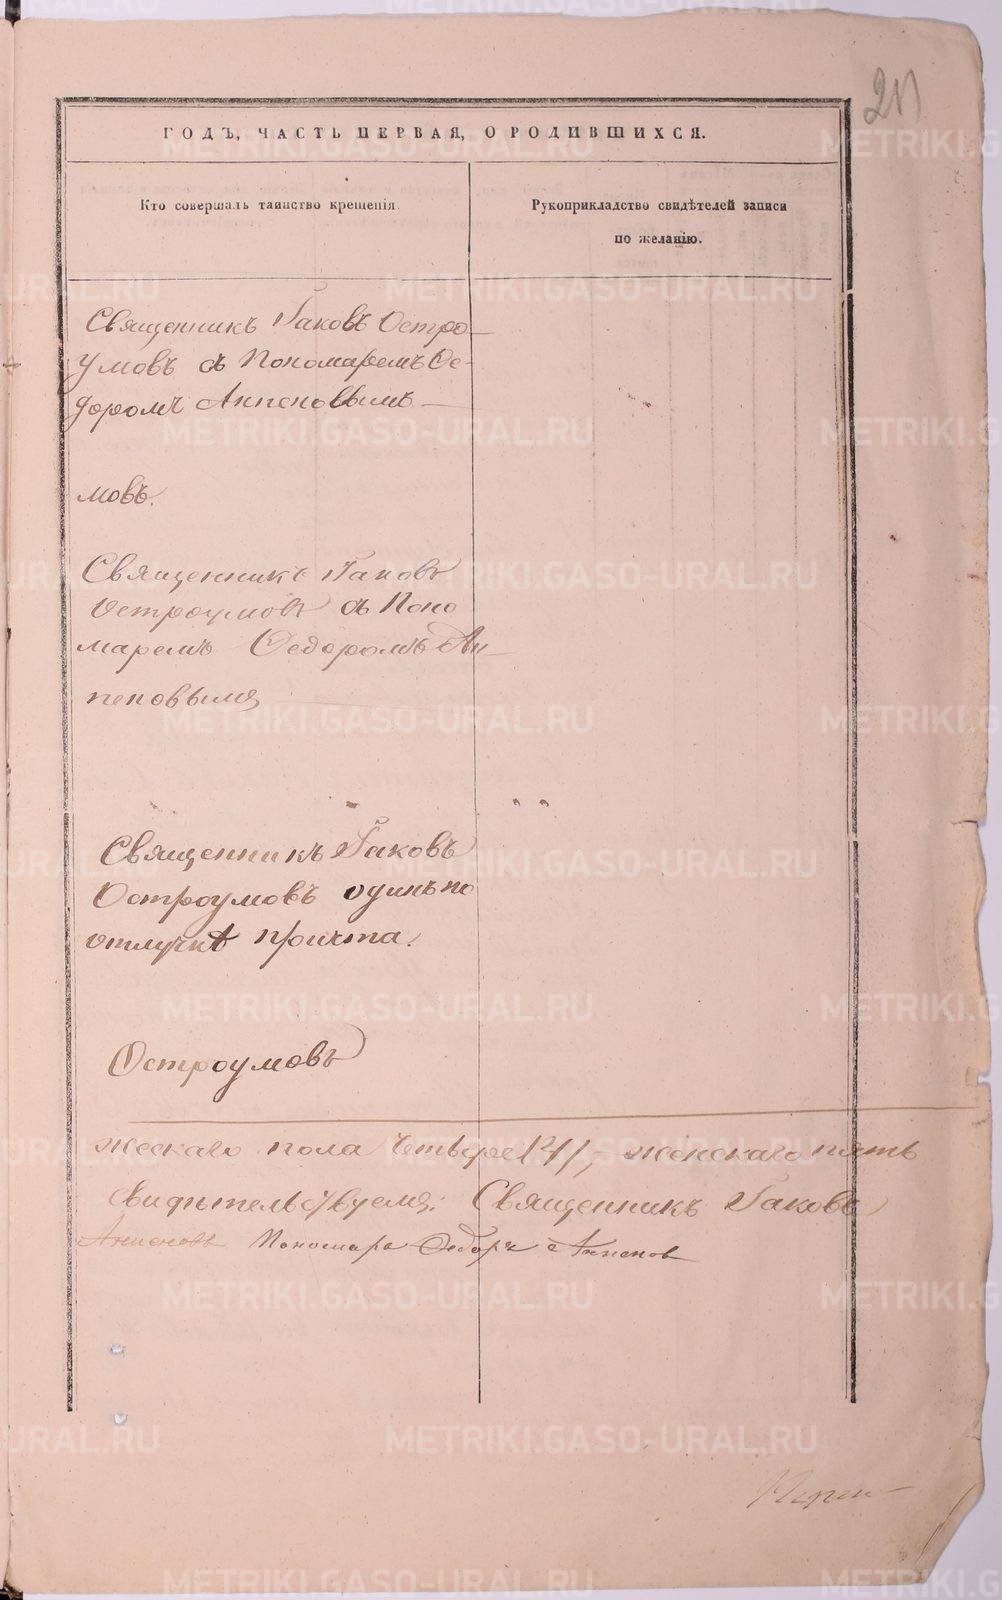 ГОДЪ, ЧАСТЬ ПЕРВАЯ, О РОДИВШИХСЯ.
Кто совершалъ таинство крещенія.
Рукоприкладство свидѣтелей записи
по желанію.
Священникъ Іаковъ Остро-
умовъ съ Пономаремъ Ѳе-
доромъ
мовъ.
Священникъ Іаковъ
Остроумовъ съ Поно
маремъ Ѳедоромъ
Священникъ Іаковъ
Остроумовъ одинъ по
отлучкѣ причта.
Остроумовъ
жескаго пола четверо /4/, женскаго пять
Свидѣтельствуемъ: Священникъ Іаковъ
Пономарь Ѳедоръ
METRIKI.GASO-URAL.RU